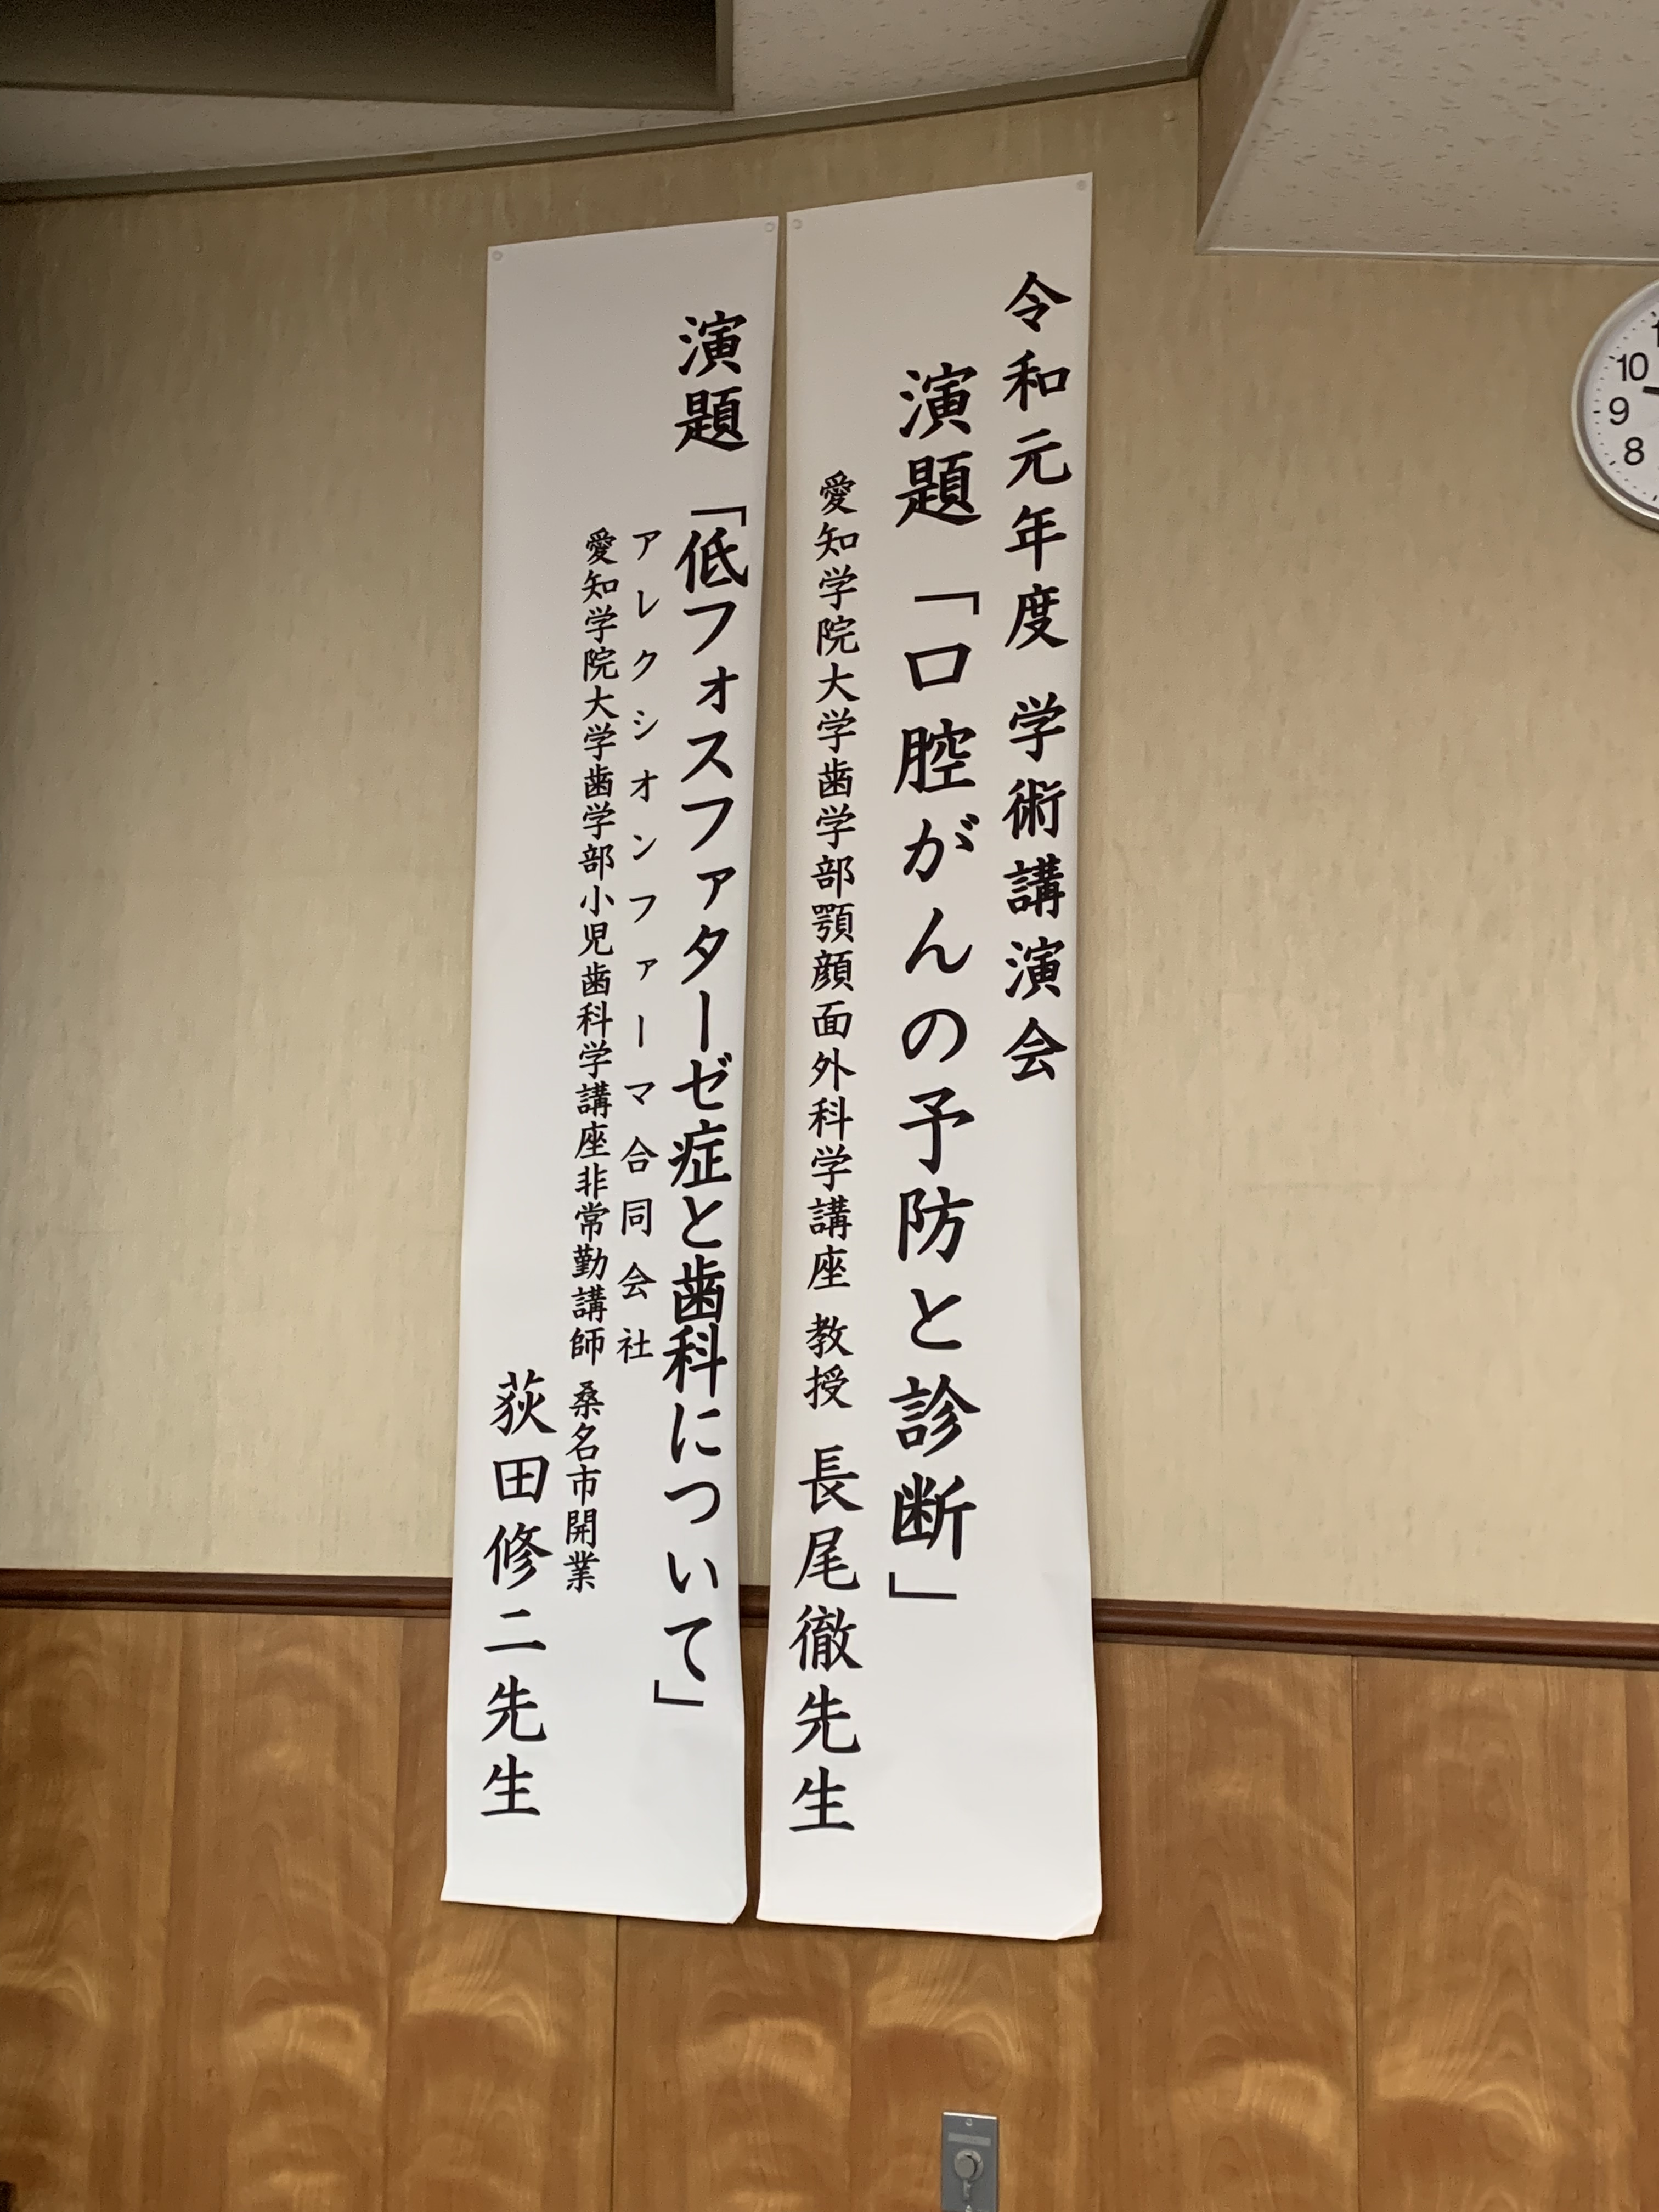 令和元年度 学術講演会
演題 「口腔がんの予防と診断」
愛知学院大学歯学部顎顔面外科学講座 教授 長尾徹先生
演題 「低フォスファターゼ症と歯科について」
アレクシオンファーマ合同会社
愛知学院大学歯学部小児歯科学講座非常勤講師 桑名市開業
荻田修二先生
10
9
8